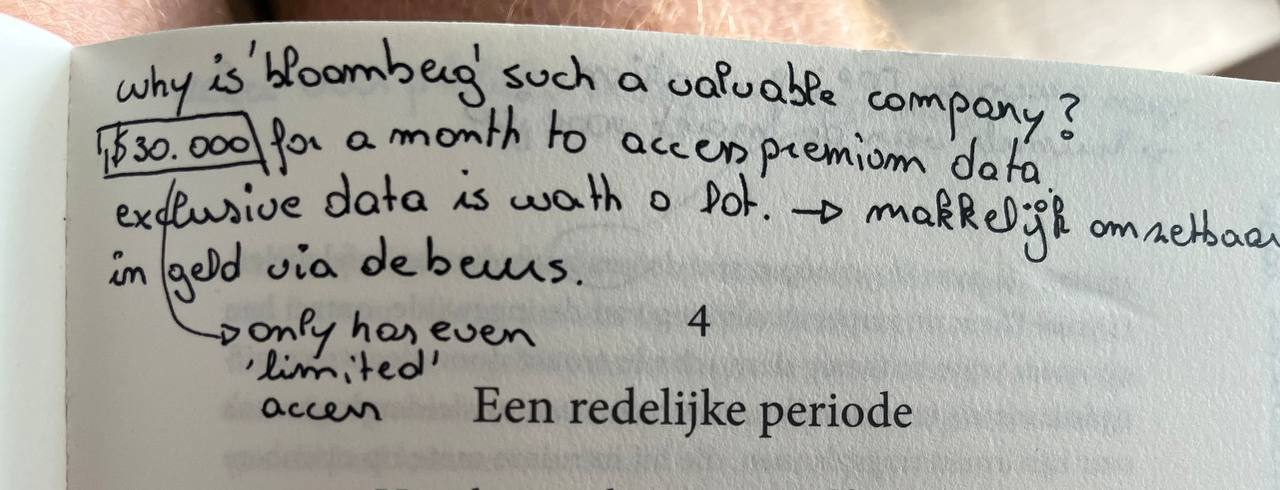 why is 'bloomberg' such a valuable company?
$30.000 for a month to access premium data.
exclusive data is wath a lot. → makkelijk omzetbaar
in geld via de beurs.
→ only has even
'limited'
access
4
Een redelijke periode